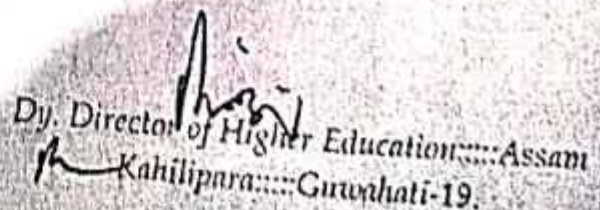 Dy. Director of Higher Education:::::Assam
Kahilipara:::::Guwahati-19.